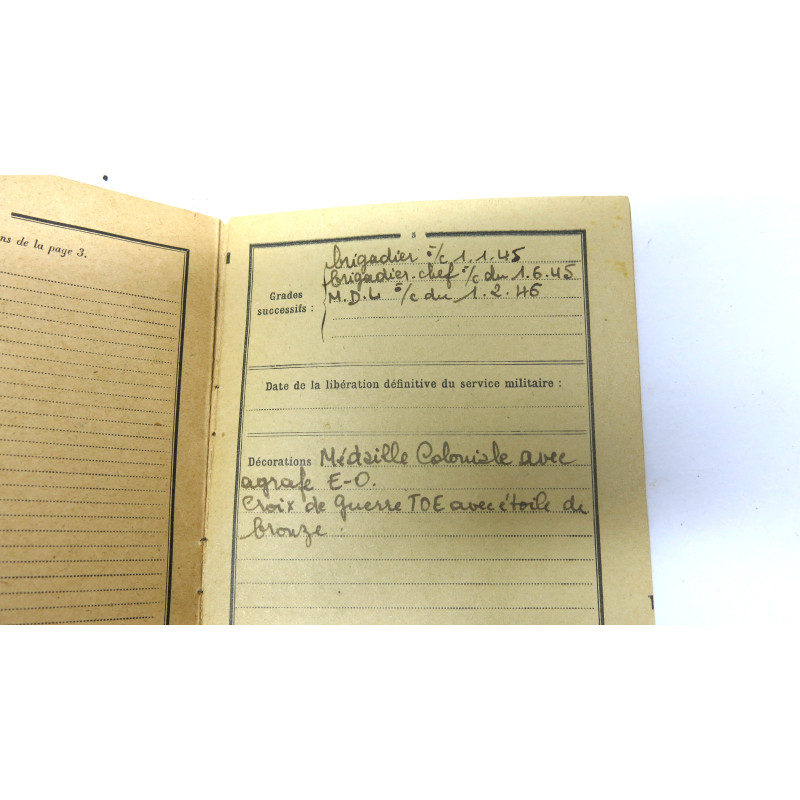 ns de la page 3.
5
Grades successifs :
brigadier à/c 1.1.45
brigadier.chef à/c du 1.6.45
M.D.L à/c du 1.2.46
Date de la libération définitive du service militaire :
Décorations Médaille Coloniale avec
agrafe E-O.
Croix de guerre TOE avec étoile de
bronze.